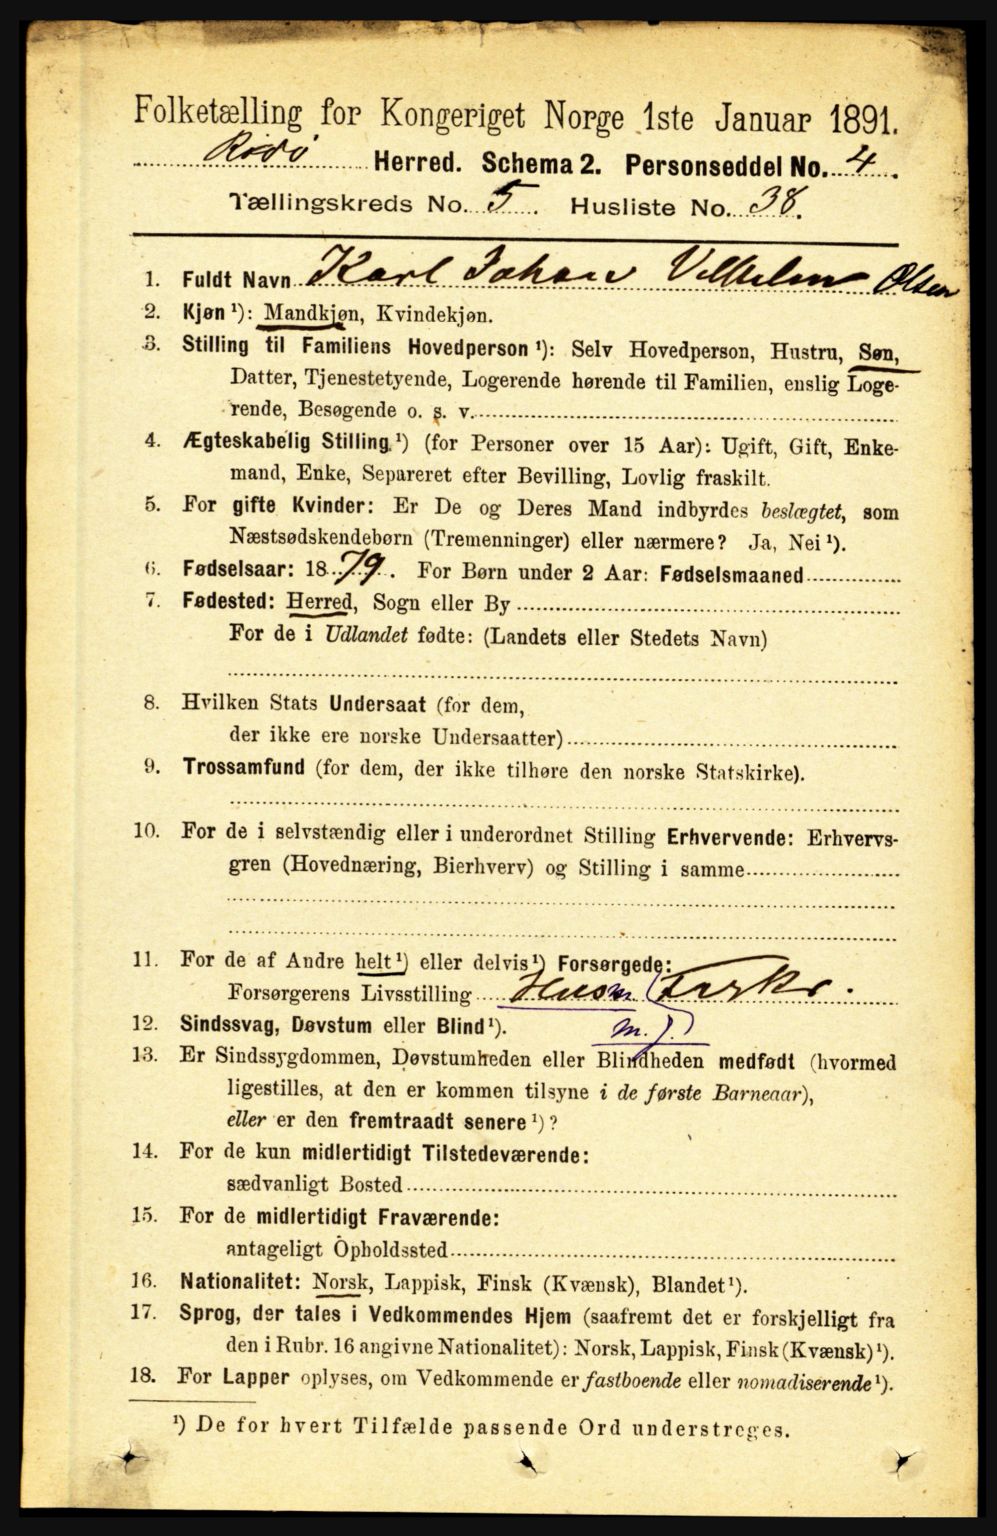 Folketælling for Kongeriget Norge 1ste Januar 1891.
Rødø Herred. Schema 2. Personseddel No. 4.
Tællingskreds No. 5. Husliste No. 38.
1. Fuldt Navn Karl Johan Vilhelm Olsen
2. Kjøn ¹): Mandkjøn, Kvindekjøn.
3. Stilling til Familiens Hovedperson ¹): Selv Hovedperson, Hustru, Søn,
Datter, Tjenestetyende, Logerende hørende til Familien, enslig Loge-
rende, Besøgende o. s. v.
4. Ægteskabelig Stilling.¹) (for Personer over 15 Aar): Ugift, Gift, Enke-
mand, Enke, Separeret efter Bevilling, Lovlig fraskilt.
5. For gifte Kvinder: Er De og Deres Mand indbyrdes beslægtet, som
Næstsødskendebørn (Tremenninger) eller nærmere? Ja, Nei ¹).
6. Fødselsaar: 1879. For Børn under 2 Aar: Fødselsmaaned
7. Fødested: Herred, Sogn eller By
For de i Udlandet fødte: (Landets eller Stedets Navn)
8. Hvilken Stats Undersaat (for dem,
der ikke ere norske Undersaatter)
9. Trossamfund (for dem, der ikke tilhøre den norske Statskirke).
10. For de i selvstændig eller i underordnet Stilling Erhvervende: Erhvervs-
gren (Hovednæring, Bierhverv) og Stilling i samme
11. For de af Andre helt ¹) eller delvis ¹) Forsørgede:
Forsørgerens Livsstilling Husm. (Fisker.
12. Sindssvag, Døvstum eller Blind ¹). m. j.)
13. Er Sindssygdommen, Døvstumheden eller Blindheden medfødt (hvormed
ligestilles, at den er kommen tilsyne i de første Barneaar),
eller er den fremtraadt senere ¹)?
14. For de kun midlertidigt Tilstedeværende:
sædvanligt Bosted
15. For de midlertidigt Fraværende:
antageligt Opholdssted
16. Nationalitet: Norsk, Lappisk, Finsk (Kvænsk), Blandet ¹).
17. Sprog, der tales i Vedkommendes Hjem (saafremt det er forskjelligt fra
den i Rubr. 16 angivne Nationalitet): Norsk, Lappisk, Finsk (Kvænsk) ¹).
18. For Lapper oplyses, om Vedkommende er fastboende eller nomadiserende ¹).
¹) De for hvert Tilfælde passende Ord understreges.